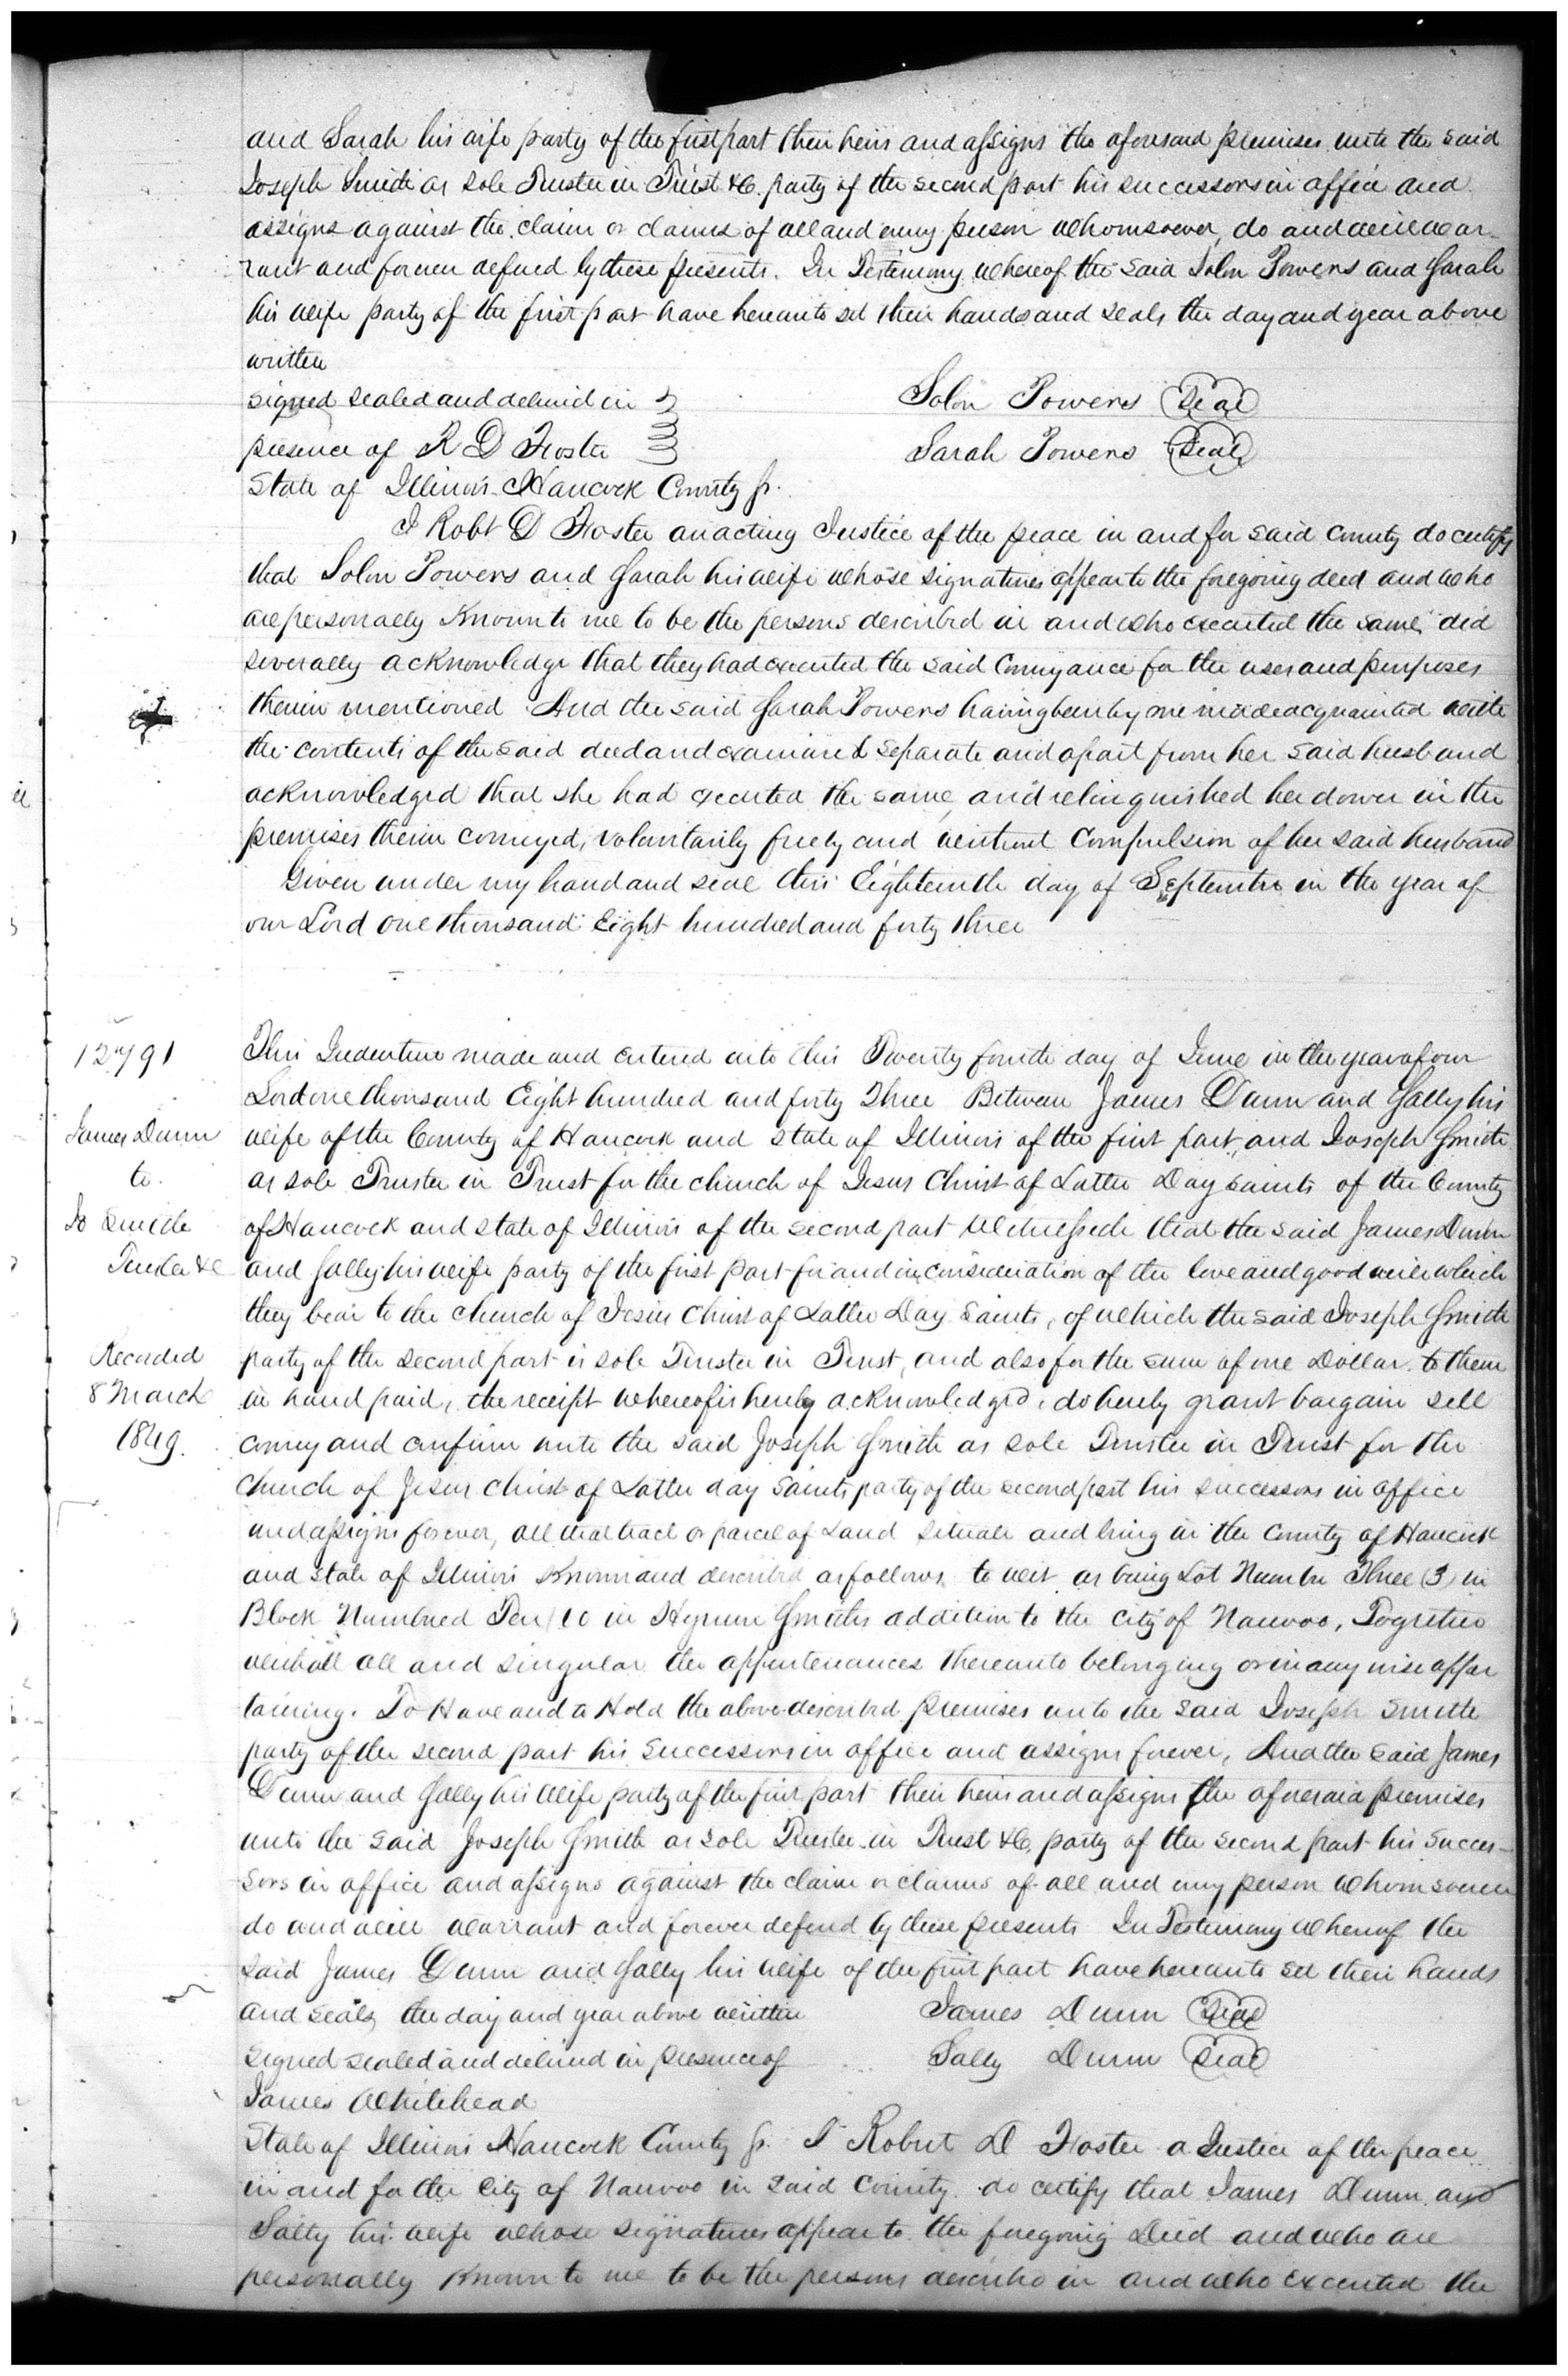 and Sarah his wife party of the first part their heirs and assigns the aforesaid premises unto the said
Joseph Smith as sole Trustee in Trust &C. party of the second part his successors in office and
assigns against the claim or claims of all and every person whomsoever, do and will war-
rant and forever defend by these presents. In Testimony whereof the said Solon Powers and Sarah
his wife party of the first part have hereunto set their hands and seals the day and year above
written
signed sealed and deliverd in
presence of R D Foster
Solon Powers Seal
Sarah Powers Seal
State of Illinois Hancock County Ss.
I Robt D Foster an acting Justice of the peace in and for said county do certify
that Solon Powers and Sarah his wife whose signatures appear to the foregoing deed and who
are personally Known to me to be the persons described in and who executed the same, did
severally acknowledge that they had executed the said Conveyance for the uses and purposes
therein mentioned And the said Sarah Powers having been by me made acquainted with
the contents of the said deed and examined separate and apart from her said husband
acknowledged that she had executed the same, and relinquished her dower in the
premises therein conveyed, voluntarily freely and without Compulsion of her said husband
Given under my hand and seal this Eighteenth day of September in the year of
our Lord one thousand Eight hundred and forty three
12791
James Dunn
to
Jo Smith
Trustee &c
Recorded
8 March
1849.
This Indenture made and entered into this Twenty fourth day of June in the year of our
Lord one thousand Eight hundred and forty Three Between James Dunn and Sally his
wife of the County of Hancock and State of Illinois of the first part, and Joseph Smith
as sole Trustee in Trust for the church of Jesus Christ of Latter Day Saints of the County
of Hancock and State of Illinois of the second part Witnesseth that the said James Dunn
and Sally his wife party of the first part for and in consideration of the love and good will which
they bear to the church of Jesus Christ of Latter Day Saints, of which the said Joseph Smith
party of the second part is sole Trustee in Trust, and also for the sum of one Dollar to them
in hand paid, the receipt whereof is hereby acknowledged, do hereby grant bargain sell
convey and confirm unto the said Joseph Smith as sole Trustee in Trust for the
Church of Jesus Christ of Latter day Saints party of the second part his successors in office
and assigns forever, all that tract or parcel of Land situate and lying in the County of Hancock
and State of Illinois Known and described as follows to wit as being Lot Number Three (3) in
Block Numbered Ten (10 in Hyrum Smiths addition to the City of Nauvoo, Together
with all all and singular the appertenances thereunto belonging or in any wise apper
taining. To Have and to Hold the above described premises unto the said Joseph Smith
party of the second part his successors in office and assigns forever, And the said James
Dunn and Sally his wife party of the first part their heirs and assigns the aforesaid premises
unto the said Joseph Smith as sole Trustee in Trust &C. party of the second part his succes-
sors in office and assigns against the claim or claims of all and every person whomsoever
do and will warrant and forever defend by these presents In Testimony whereof the
said James Dunn and Sally his wife of the first part have hereunto set their hands
and seals, the day and year above written
signed sealed and deliverd in presence of
James Whitehead
James Dunn Seal
Sally Dunn Seal
State of Illinois Hancock County Ss. I Robert D Foster a Justice of the peace
in and for the City of Nauvoo in said County do certify that James Dunn and
Sally his wife whose signatures appear to the foregoing Deed and who are
personally Known to me to be the persons described in and who Executed the